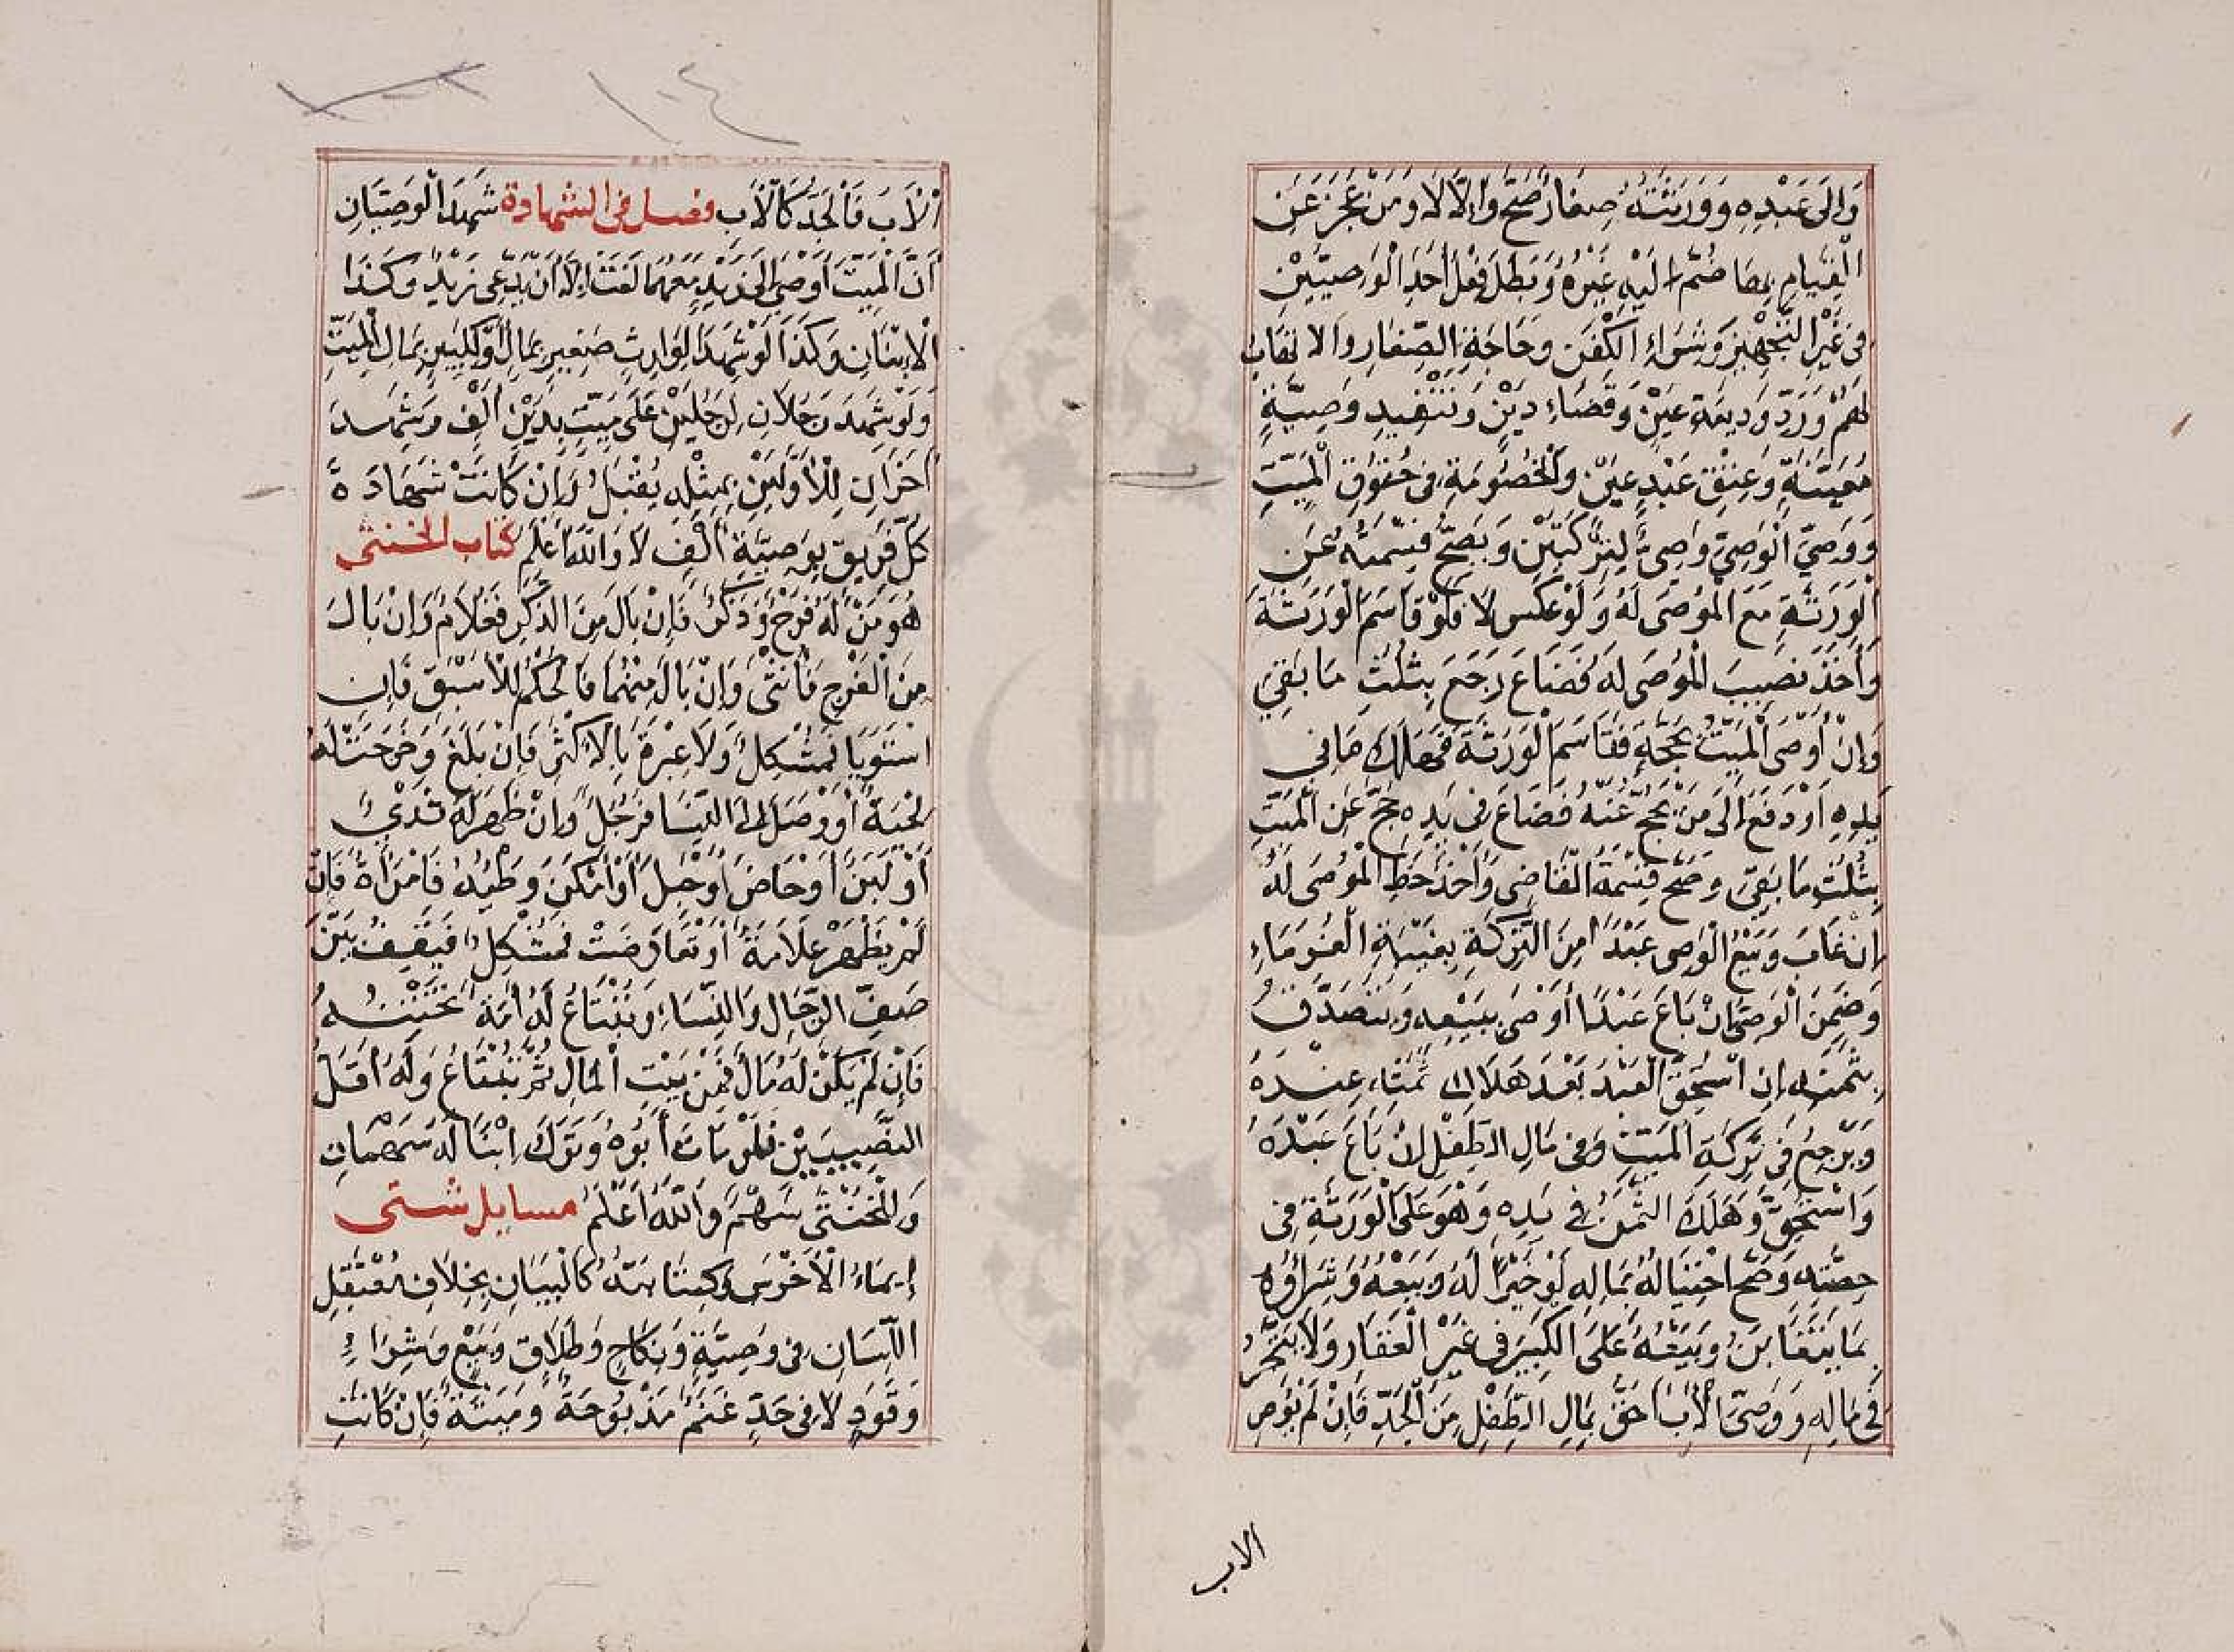 وَإِلَى عَبْدِهِ وَوَرَثَتُهُ صِغَارٌ صَحَّ وَإِلَّا لَا وَمَنْ عَجَزَ عَنِ
الْقِيَامِ بِهَا ضُمَّ إِلَيْهِ غَيْرُهُ وَبَطَلَ فِعْلُ أَحَدِ الْوَصِيَّيْنِ
فِى غَيْرِ التَّجْهِيزِ وَشِرَاءِ الْكَفَنِ وَحَاجَةِ الصِّغَارِ وَالاتهَابِ
لَهُمْ وَرَدِّ وَدِيعَةِ عَيْنٍ وَقَضَاءِ دَيْنٍ وَتَنْفِيذِ وَصِيَّةٍ
مُعَيَّنَةٍ وَعِتْقِ عَبْدٍ عَيْنٍ وَالْخُصُومَةِ فِى حُقُوقِ الْمَيِّتِ
وَوَصِيُّ الْوَصِيِّ وَصِيٌّ لِتَرِكَتَيْنِ وَيَصِحُّ قِسْمَتُهُ عَنِ
الْوَرَثَةِ مَعَ الْمُوصَى لَهُ وَلَوْ عَكَسَ لَا فَلَوْ قَاسَمَ الْوَرَثَةَ
وَأَخَذَ نَصِيبَ الْمُوصَى لَهُ فَضَاعَ رَجَعَ بِثُلُثِ مَا بَقِيَ
وَإِنْ أَوْصَى الْمَيِّتُ بِحَجَّةٍ فَقَاسَمَ الْوَرَثَةَ فَهَلَكَ مَا فِى
يَدِهِ أَوْ دَفَعَ إِلَى مَنْ يَحُجُّ عَنْهُ فَضَاعَ فِى يَدِهِ حُجَّ عَنِ الْمَيِّتِ
بِثُلُثِ مَا بَقِيَ وَصَحَّ قِسْمَةُ الْقَاضِى وَأَخْذُ حَظِّ الْمُوصَى لَهُ
إِنْ غَابَ وَبَيْعُ الْوَصِى عَبْدًا مِنَ التَّرِكَةِ بِغَيْبَةِ الْغُرَمَاءِ
وَضَمِنَ الْوَصِىُّ إِنْ بَاعَ عَبْدًا أَوْصَى بِبَيْعِهِ وَيَتَصَدَّقُ
بِثَمَنِهِ إِنِ اسْتُحِقَّ الْعَبْدُ بَعْدَ هَلَاكِ ثَمَنِهِ عِنْدَهُ
وَيَرْجِعُ فِى تَرِكَةِ الْمَيِّتِ وَفِى مَالِ الطِّفْلِ إِنْ بَاعَ عَبْدَهُ
وَاسْتُحِقَّ وَهَلَكَ الثَّمَنُ فِى يَدِهِ وَهُوَ عَلَى الْوَرَثَةِ فِى
حِصَّتِهِ وَصَحَّ احْتِيَالُهُ بِمَالِهِ لَوْ خَيْرًا لَهُ وَبَيْعُهُ وَشِرَاؤُهُ
بِمَا يَتَغَابَنُ وَبَيْعُهُ عَلَى الْكَبِيرِ فِى غَيْرِ الْعَقَارِ وَلَا يَتَّجِرُ
فِى مَالِهِ وَوَصِىُّ الْأَبِ أَحَقُّ بِمَالِ الطِّفْلِ مِنَ الْجَدِّ فَإِنْ لَمْ يُوصِ
الاب
١٠٤
الْأَبُ فَالْجَدُّ كَالْأَبِ فصل فى الشهادة شَهِدَ الْوَصِيَّانِ
أَنَّ الْمَيِّتَ أَوْصَى إِلَى زَيْدٍ مَعَهُمَا لَغَتْ إِلَّا أَنْ يَدَّعِىَ زَيْدٌ وَكَذَا
الْابْنَانِ وَكَذَا لَوْ شَهِدَا لِوَارِثٍ صَغِيرٍ بِمَالٍ أَوْ لِكَبِيرٍ بِمَالِ الْمَيِّتِ
وَلَوْ شَهِدَ رَجُلَانِ لِرَجُلَيْنِ عَلَى مَيِّتٍ بِدَيْنِ أَلْفٍ وَشَهِدَ
آخَرَانِ لِلْأَوَّلَيْنِ بِمِثْلِهِ يُقْبَلُ وَإِنْ كَانَتْ شَهَادَةُ
كُلِّ فَرِيقٍ بِوَصِيَّةِ أَلْفٍ لَا وَاللَّهُ أَعْلَمُ كتاب الخنثى
هُوَ مَنْ لَهُ فَرْجٌ وَذَكَرٌ فَإِنْ بَالَ مِنَ الذَّكَرِ فَغُلَامٌ وَإِنْ بَالَ
مِنَ الْفَرْجِ فَأُنْثَى وَإِنْ بَالَ مِنْهُمَا فَالْحُكْمُ لِلْأَسْبَقِ فَإِنِ
اسْتَوَيَا فَمُشْكِلٌ وَلَا عِبْرَةَ بِالْأَكْثَرِ فَإِنْ بَلَغَ وَخَرَجَتْ لَهُ
لِحْيَةٌ أَوْ وَصَلَ إِلَى النِّسَا فَرَجُلٌ وَإِنْ ظَهَرَ لَهُ ثَدْيٌ
أَوْ لَبَنٌ أَوْ حَاضَ أَوْ حَبِلَ أَوْ أَمْكَنَ وَطْيُهُ فَامْرَأَةٌ فَإِنْ
لَمْ يَظْهَرْ عَلَامَةٌ أَوْ تَعَارَضَتْ فَمُشْكِلٌ فَيَقِفُ بَيْنَ
صَفِّ الرِّجَالِ وَالنِّسَاءِ وَتُبْتَاعُ لَهُ أَمَةٌ تَخْتِنُهُ
فَإِنْ لَمْ يَكُنْ لَهُ مَالٌ فَمِنْ بَيْتِ الْمَالِ ثُمَّ تُبَاعُ وَلَهُ أَقَلُّ
النَّصِيبَيْنِ فَلَوْ مَاتَ أَبُوهُ وَتَرَكَ ابْنًا لَهُ سَهْمَانِ
وَلِلْخُنْثَى سَهْمٌ وَاللَّهُ أَعْلَمُ مسايل شتى
إِيمَاءُ الْأَخْرَسِ وَكِتَابَتُهُ كَالْبَيَانِ بِخِلَافِ مُعْتَقَلِ
اللِّسَانِ فِى وَصِيَّةٍ وَنِكَاحٍ وَطَلَاقٍ وَبَيْعٍ وَشِرَاءٍ
وَقَوَدٍ لَا فِى حَدٍّ غَنَمٌ مَذْبُوحَةٌ وَمَيْتَةٌ فَإِنْ كَانَتِ